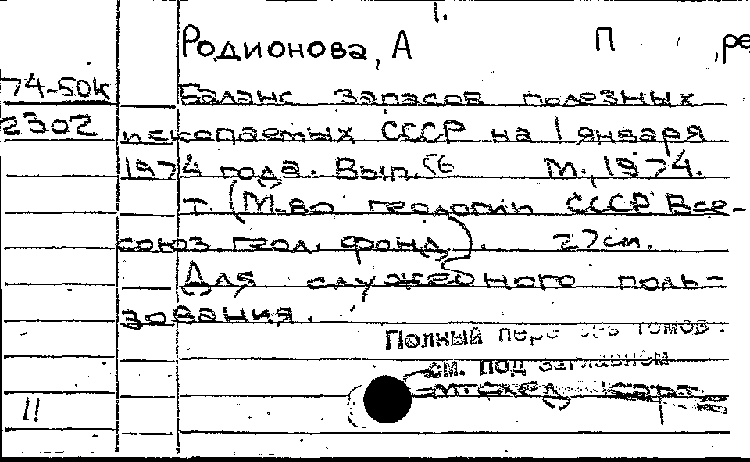 1.
Родионова, А П , ре
74-50к Баланс запасов полезных
2302 ископаемых СССР на 1 января
1974 года. Вып. 56 М., 1974.
т. (М-во геологии СССР Все-
союз геол. фонд). 27 см.
Для служебного поль-
зования.
Полный томов.
см. под заглавном
11